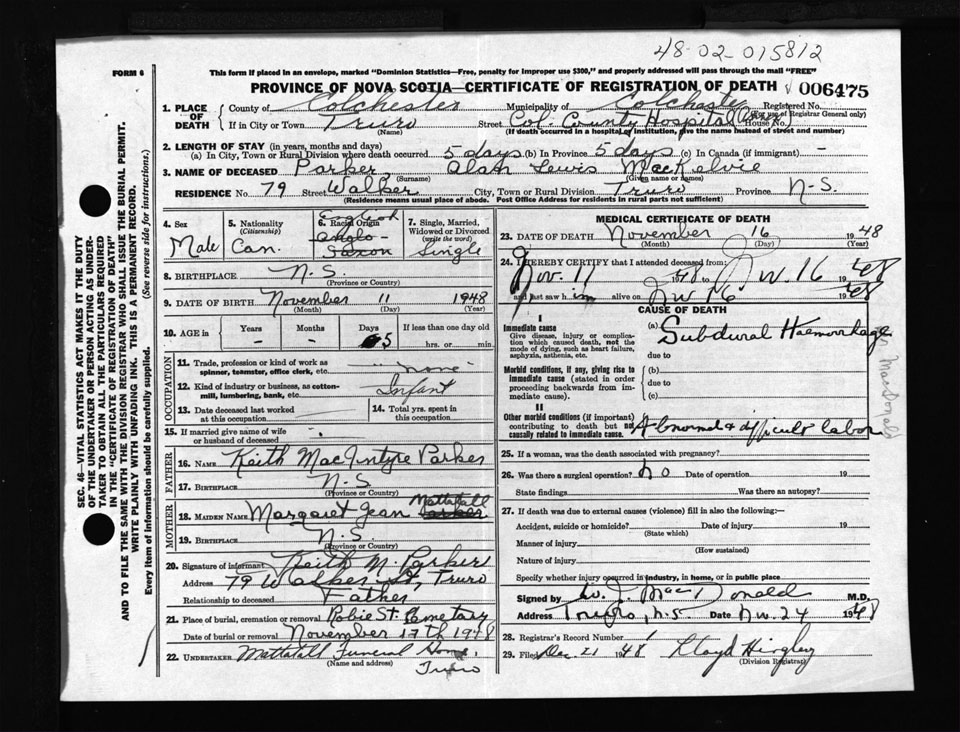 48-02-015812
FORM 6
This form if placed in an envelope, marked "Dominion Statistics—Free, penalty for improper use $300," and properly addressed will pass through the mail "FREE"
PROVINCE OF NOVA SCOTIA—CERTIFICATE OF REGISTRATION OF DEATH 006475
1. PLACE OF DEATH County of Colchester Municipality of Colchester Registered No.
(For use of Registrar General only)
If in City or Town Truro Street Col. County Hospital House No.
(Name) (If death occurred in a hospital or institution, give the name instead of street and number)
2. LENGTH OF STAY (in years, months and days)
(a) In City, Town or Rural Division where death occurred 5 days (b) In Province 5 days (c) In Canada (if immigrant) -
3. NAME OF DECEASED Parker, Alan Lewis MacKelvie
(Surname) (Given name or names)
RESIDENCE No. 79 Street Walker City, Town or Rural Division Truro Province N-S.
(Residence means usual place of abode. Post Office Address for residents in rural parts not sufficient)
4. Sex
Male
5. Nationality
(Citizenship)
Can.
6. Racial Origin
English
Anglo-
Saxon
7. Single, Married, Widowed or Divorced
(write the word)
Single
8. BIRTHPLACE N.S.
(Province or Country)
9. DATE OF BIRTH November 11 1948
(Month) (Day) (Year)
10. AGE in Years Months Days If less than one day old
- - 5 hrs. or min.
OCCUPATION
11. Trade, profession or kind of work as
spinner, teamster, office clerk, etc. none
12. Kind of industry or business, as cotton-
mill, lumbering, bank, etc. Infant
13. Date deceased last worked
at this occupation
14. Total yrs. spent in
this occupation
15. If married give name of wife
or husband of deceased
FATHER
16. NAME Keith MacIntyre Parker
17. BIRTHPLACE N-S
(Province or Country)
MOTHER
18. MAIDEN NAME Margaret Jean Mattatall
19. BIRTHPLACE N.S.
(Province or Country)
20. Signature of informant Keith M. Parker
Address 79 Walker St, Truro
Relationship to deceased Father
21. Place of burial, cremation or removal Robie St. Cemetary
Date of burial or removal November 17th 1948
22. UNDERTAKER Mattatall Funeral Home,
(Name and address) Truro
MEDICAL CERTIFICATE OF DEATH
23. DATE OF DEATH November 16 1948
(Month) (Day) (Year)
24. I HEREBY CERTIFY that I attended deceased from:
Nov. 11 1948 to Nov. 16 1948
and last saw him alive on Nov 16 1948
CAUSE OF DEATH
I
Immediate cause
Give disease, injury or complication which caused death, not the mode of dying, such as heart failure, asphyxia, asthenia, etc.
(a) Subdural Haemorrhage
due to
Morbid conditions, if any, giving rise to immediate cause (stated in order proceeding backwards from immediate cause).
(b)
due to
(c)
II
Other morbid conditions (if important) contributing to death but not causally related to immediate cause.
Abnormal & difficult labor
MacDonald
25. If a woman, was the death associated with pregnancy?
26. Was there a surgical operation? no Date of operation 19
State findings Was there an autopsy?
27. If death was due to external causes (violence) fill in also the following:—
Accident, suicide or homicide? Date of injury 19
(State which)
Manner of injury
(How sustained)
Nature of injury
Specify whether injury occurred in industry, in home, or in public place
Signed by W. J. MacDonald M.D.
Address Truro, N.S. Date Nov. 24 1948
28. Registrar's Record Number 1
29. Filed Dec. 21 1948 Lloyd Hingley
(Division Registrar)
SEC. 46—VITAL STATISTICS ACT MAKES IT THE DUTY
OF THE UNDERTAKER OR PERSON ACTING AS UNDER-
TAKER TO OBTAIN ALL THE PARTICULARS REQUIRED
IN THE "CERTIFICATE OF REGISTRATION OF DEATH"
AND TO FILE THE SAME WITH THE DIVISION REGISTRAR WHO SHALL ISSUE THE BURIAL PERMIT.
WRITE PLAINLY WITH UNFADING INK. THIS IS A PERMANENT RECORD.
Every item of information should be carefully supplied. (See reverse side for instructions.)